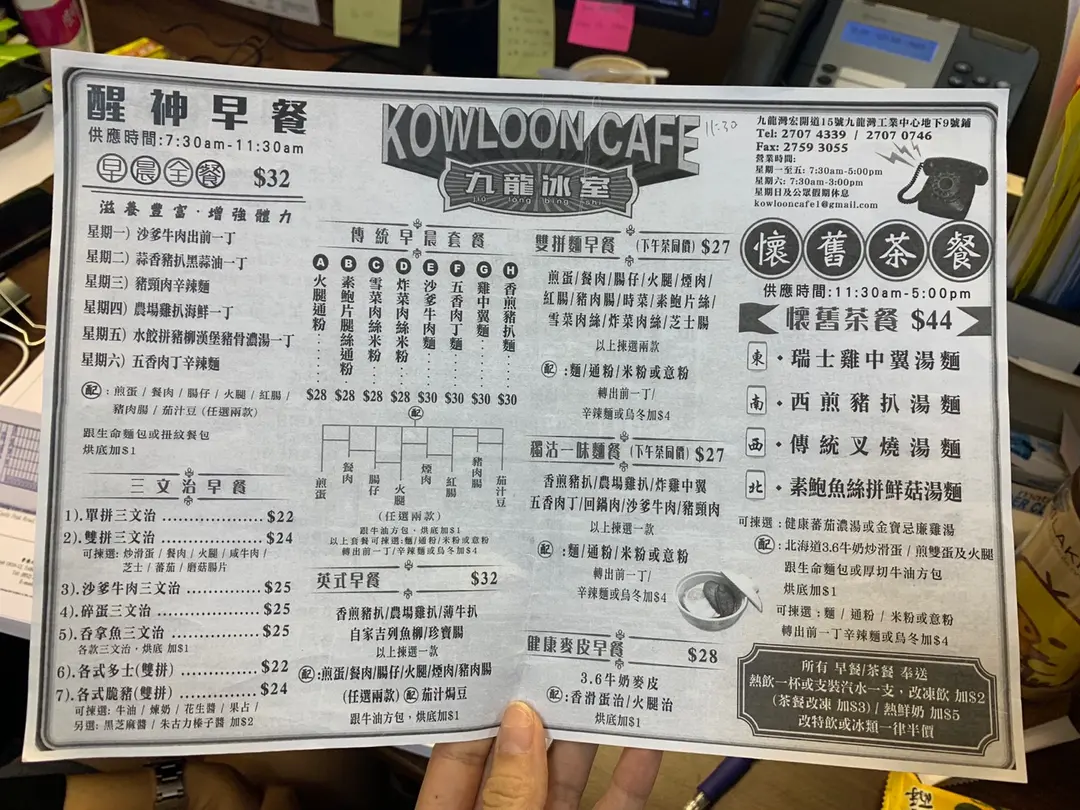 醒神早餐
供應時間:7:30am-11:30am
早晨全餐 $32
滋養豐富·增強體力
星期一) 沙爹牛肉出前一丁
星期二) 蒜香豬扒黑蒜油一丁
星期三) 豬頸肉辛辣麵
星期四) 農場雞扒海鮮一丁
星期五) 水餃拼豬柳漢堡豬骨濃湯一丁
星期六) 五香肉丁辛辣麵
配:煎蛋/餐肉/腸仔/火腿/紅腸/
豬肉腸/茄汁豆(任選兩款)
跟生命麵包或扭紋餐包
烘底加$1
三文治早餐
1).單拼三文治 $22
2).雙拼三文治 $24
可揀選:炒滑蛋/餐肉/火腿/咸牛肉/
芝士/蕃茄/磨菇腸片
3).沙爹牛肉三文治 $25
4).碎蛋三文治 $25
5).吞拿魚三文治 $25
各款三文治,烘底 加$1
6).各式多士(雙拼) $22
7).各式脆豬(雙拼) $24
可揀選:牛油/煉奶/花生醬/果占/
另選:黑芝麻醬/朱古力榛子醬 加$2
KOWLOON CAFE
11:30
九龍冰室
jiu long bing shi
傳統早晨套餐
A 火腿通粉 $28
B 素鮑片腿絲通粉 $28
C 雪菜肉絲米粉 $28
D 炸菜肉絲米粉 $28
E 沙爹牛肉麵 $30
F 五香肉丁麵 $30
G 雞中翼麵 $30
H 香煎豬扒麵 $30
配
煎蛋
餐肉
腸仔
火腿
煙肉
紅腸
豬肉腸
茄汁豆
(任選兩款)
跟牛油方包,烘底加$1
以上套餐可揀選:麵/通粉/米粉或意粉
轉出前一丁/辛辣麵或烏冬加$4
英式早餐 $32
香煎豬扒/農場雞扒/薄牛扒
自家吉列魚柳/珍寶腸
以上揀選一款
配:煎蛋/餐肉/腸仔/火腿/煙肉/豬肉腸
(任選兩款) 配 茄汁焗豆
跟牛油方包,烘底加$1
雙拼麵早餐 (下午茶同價) $27
煎蛋/餐肉/腸仔/火腿/煙肉/
紅腸/豬肉腸/時菜/素鮑片絲/
雪菜肉絲/炸菜肉絲/芝士腸
以上揀選兩款
配:麵/通粉/米粉或意粉
轉出前一丁/
辛辣麵或烏冬加$4
獨沽一味麵餐 (下午茶同價) $27
香煎豬扒/農場雞扒/炸雞中翼
五香肉丁/回鍋肉/沙爹牛肉/豬頸肉
以上揀選一款
配:麵/通粉/米粉或意粉
轉出前一丁/
辛辣麵或烏冬加$4
健康麥皮早餐 $28
3.6牛奶麥皮
配:香滑蛋治/火腿治
烘底加$1
九龍灣宏開道15號九龍灣工業中心地下9號鋪
Tel: 2707 4339 / 2707 0746
Fax: 2759 3055
營業時間:
星期一至五: 7:30am-5:00pm
星期六: 7:30am-3:00pm
星期日及公眾假期休息
kowlooncafe1@gmail.com
懷舊茶餐
供應時間:11:30am-5:00pm
懷舊茶餐 $44
東·瑞士雞中翼湯麵
南·西煎豬扒湯麵
西·傳統叉燒湯麵
北·素鮑魚絲拼鮮菇湯麵
可揀選:健康蕃茄濃湯或金寶忌廉雞湯
配:北海道3.6牛奶炒滑蛋/煎雙蛋及火腿
跟生命麵包或厚切牛油方包
烘底加$1
可揀選:麵/通粉/米粉或意粉
轉出前一丁辛辣麵或烏冬加$4
所有 早餐/茶餐 奉送
熱飲一杯或支裝汽水一支,改凍飲 加$2
(茶餐改凍 加$3)/熱鮮奶 加$5
改特飲或冰類一律半價